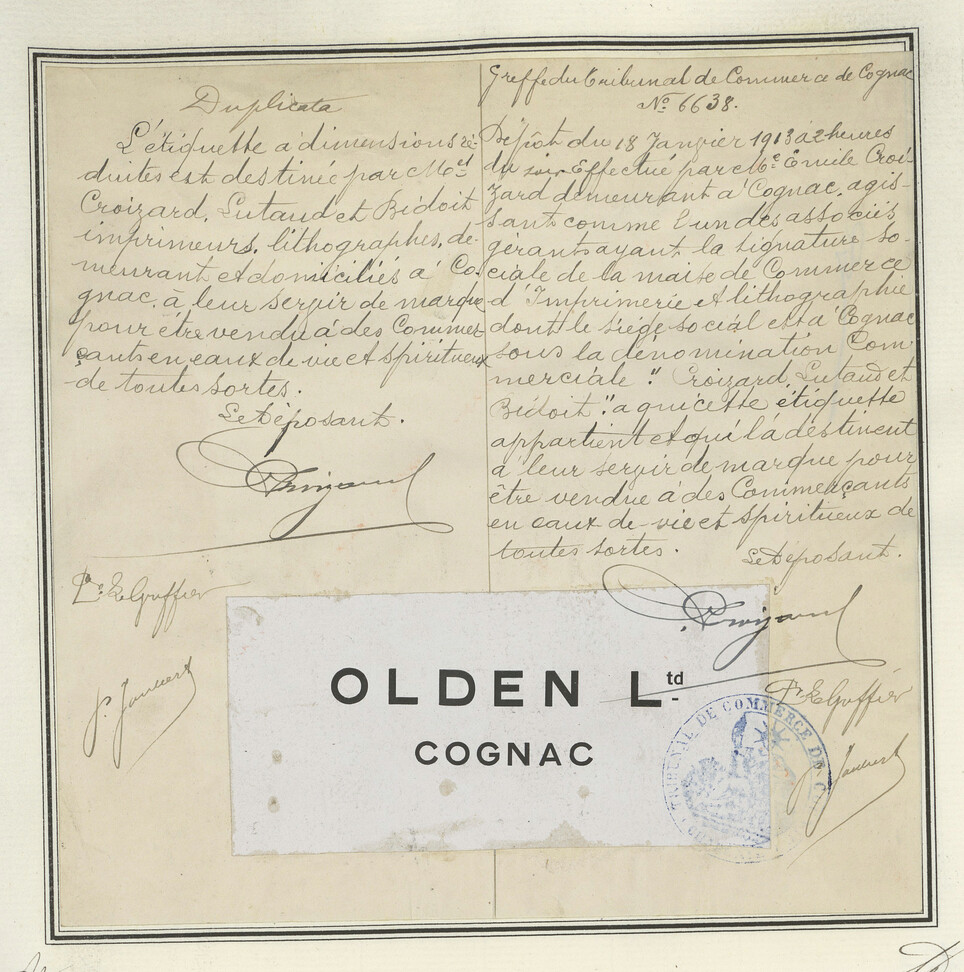 Duplicata
L'étiquette à dimensions ré-
duites est destinée par M.rs
Croizard, Lutaud et Bidoit
imprimeurs, lithographes, de-
meurant et domiciliés à Co-
gnac, à leur servir de marque
pour être vendue à des Commer-
çants en eaux de vie et spiritueux
de toutes sortes.
Le Déposant.
Croizard
Le Greffier
Greffe du Tribunal de Commerce de Cognac
No 6638.
Dépôt du 18 Janvier 1913 à 2 heures
du soir Effectué par Me Emile Croi-
zard demeurant à Cognac, agis-
sant comme l'un des associés
gérants ayant la signature so-
ciale de la maise de Commerce
d'Imprimerie et lithographie
dont le siège social est à Cognac
sous la dénomination Com-
merciale "Croizard, Lutaud et
Bidoit" a qui cette étiquette
appartient et qui la destinent
à leur servir de marque pour
être vendue à des Commerçants
en eaux-de-vie et spiritueux de
toutes sortes.
Le Déposant.
Croizard
Le Greffier
OLDEN Ltd
COGNAC
TRIBUNAL DE COMMERCE DE